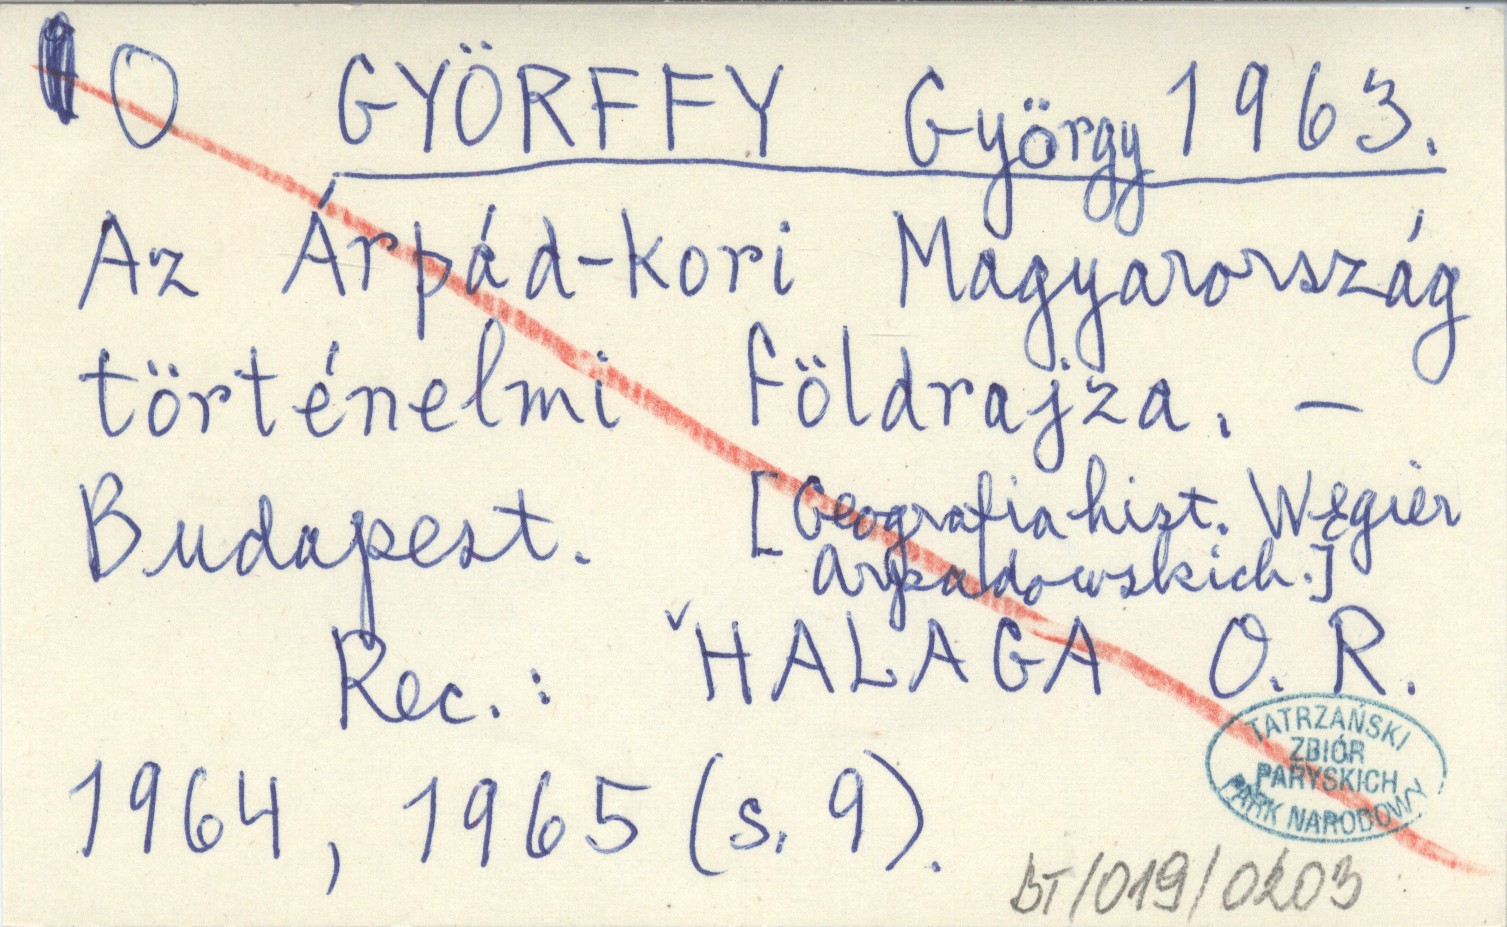 O GYÖRFFY György 1963.
Az Árpád-kori Magyarország
történelmi földrajza. –
Budapest. [Geografia hist. Węgier
Arpadowskich.]
Rec.: ˇHALAGA O. R.
1964, 1965 (s. 9).
TATRZAŃSKI
ZBIÓR
PARYSKICH
PARK NARODOWY
BT/019/0203